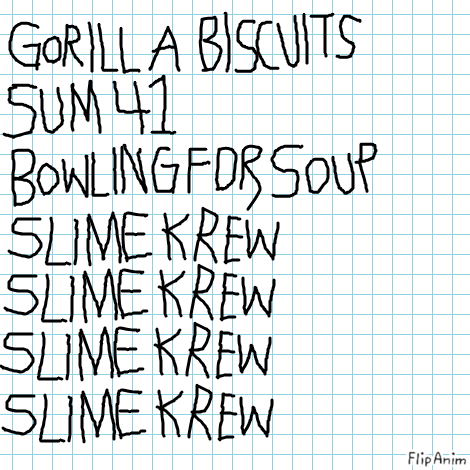 GORILLA BISCUITS
SUM 41
BOWLING FOR SOUP
SLIME KREW
SLIME KREW
SLIME KREW
SLIME KREW
FlipAnim